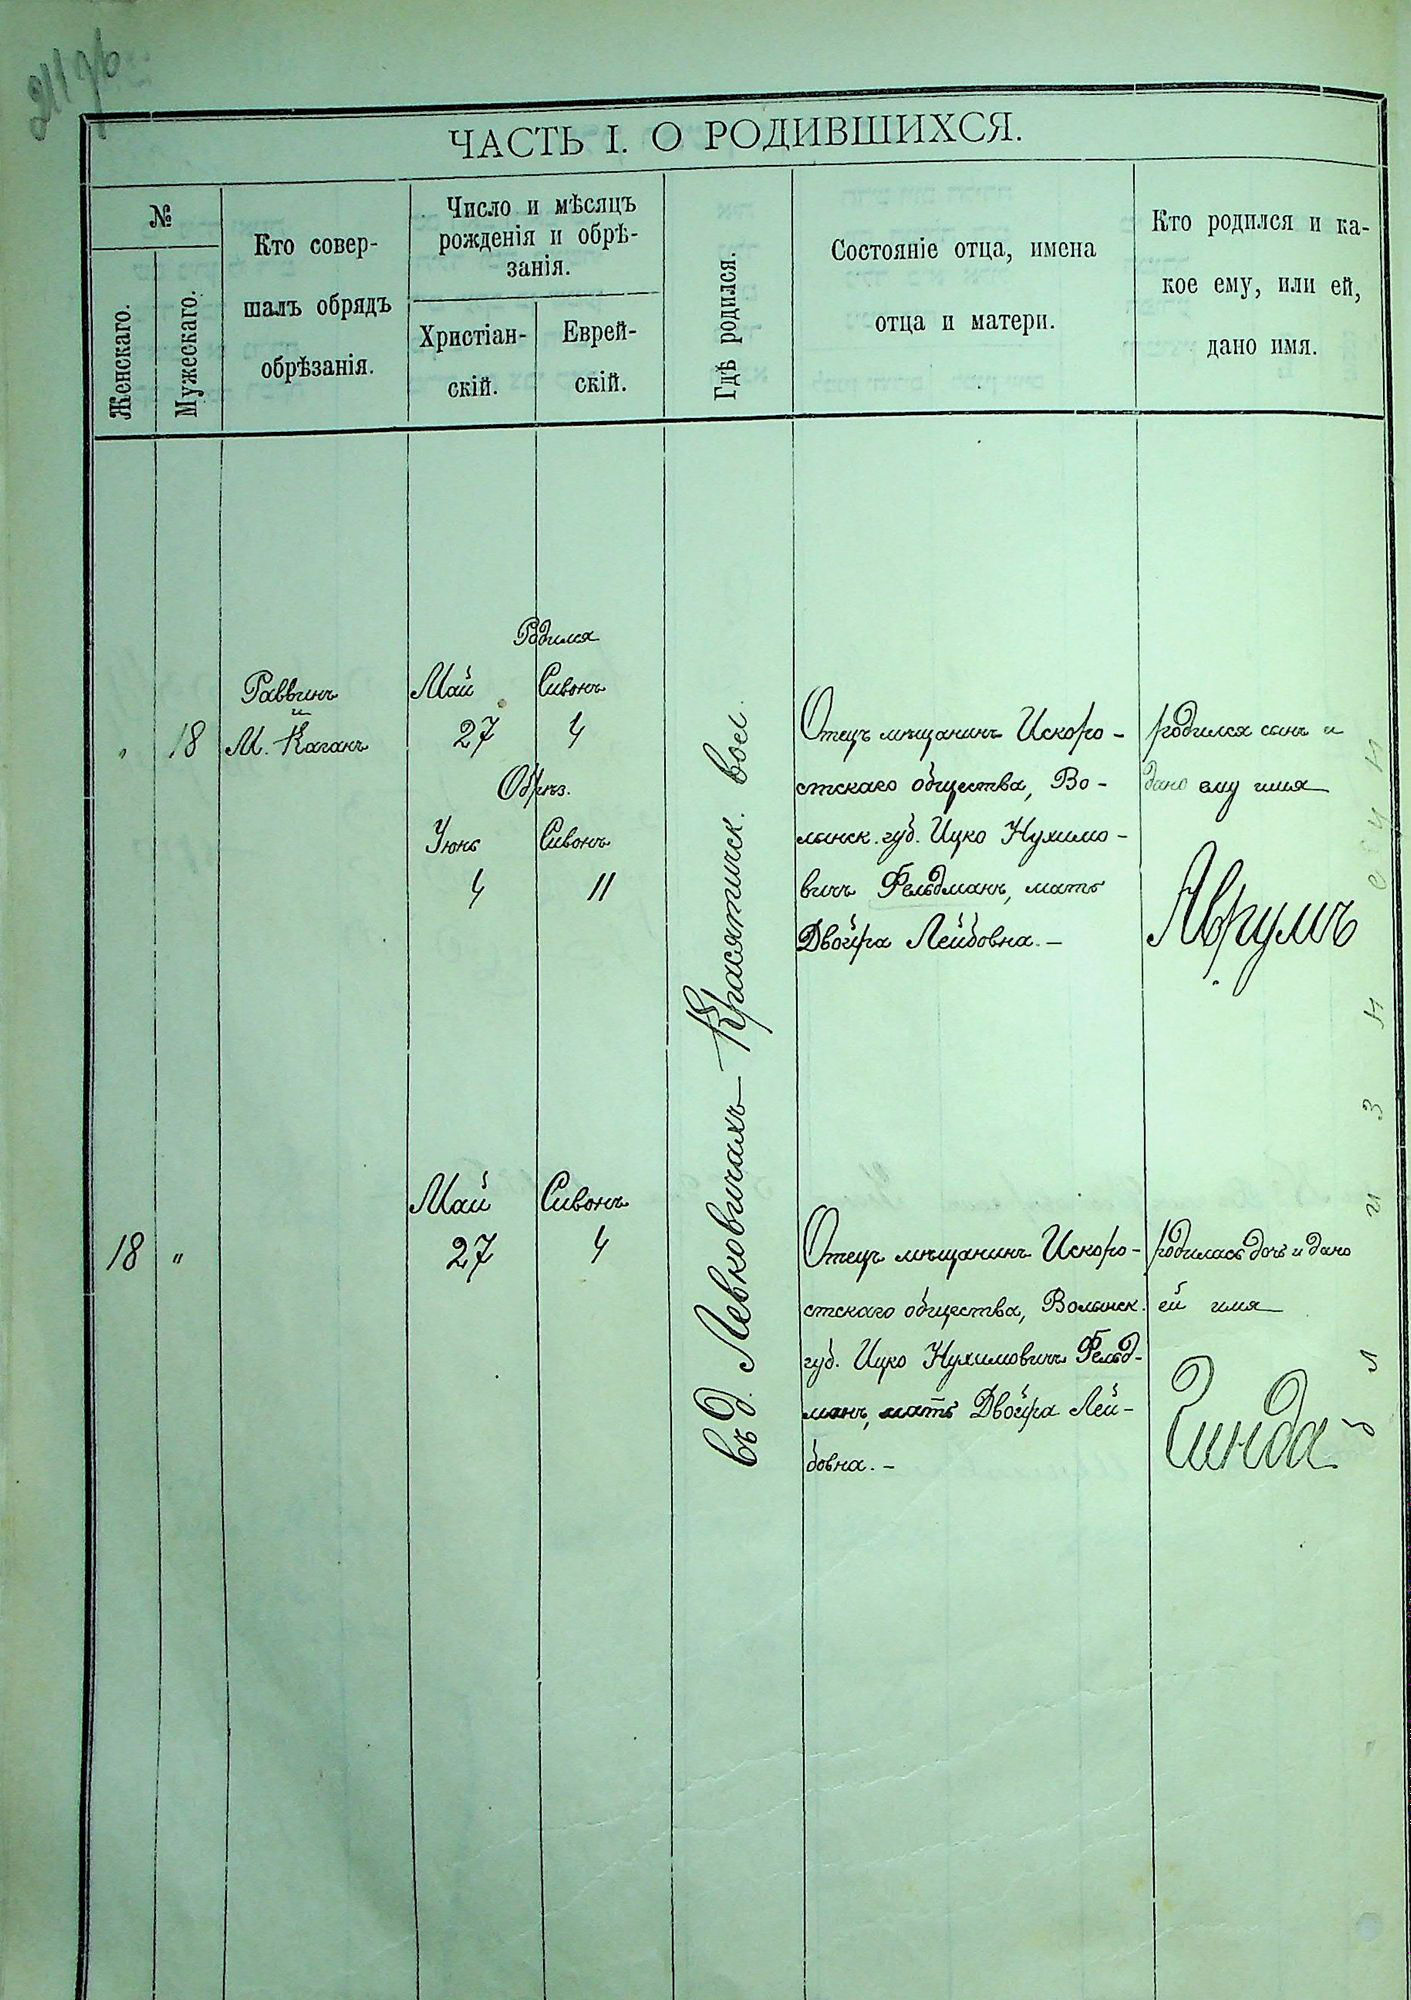 ЧАСТЬ I. О РОДИВШИХСЯ.
№
Женскаго.
Мужескаго.
Кто совер-
шалъ обрядъ
обрѣзанія.
Число и мѣсяцъ
рожденія и обрѣ-
занія.
Христіан-
скій.
Еврей-
скій.
Гдѣ родился.
Состояніе отца, имена
отца и матери.
Кто родился и ка-
кое ему, или ей,
дано имя.
Родился
Раввинъ
и
М. Каганъ
" 18
Май Сивонъ
27 4
Обрѣз.
Іюнь Сивонъ
4 11
въ д. Левковичахъ Красятичск. вол.
Отецъ мѣщанинъ Искоро-
стскаго общества, Во-
лынск. губ. Ицко Нухимо-
вичъ Фельдманъ, мать
Двойра Лейбовна. —
родился сынъ и
дано ему имя
Аврумъ
18 "
Май Сивонъ
27 4
Отецъ мѣщанинъ Искоро-
стскаго общества, Волынск.
губ. Ицко Нухимовичъ Фельд-
манъ, мать Двойра Лей-
бовна. —
родилась дочь и дано
ей имя
Гинда
близнецы